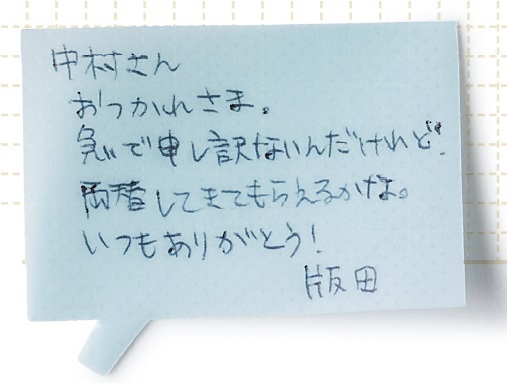 中村さん
おつかれさま。
急で申し訳ないんだけれど、
両替してきてもらえるかな。
いつもありがとう！
版田